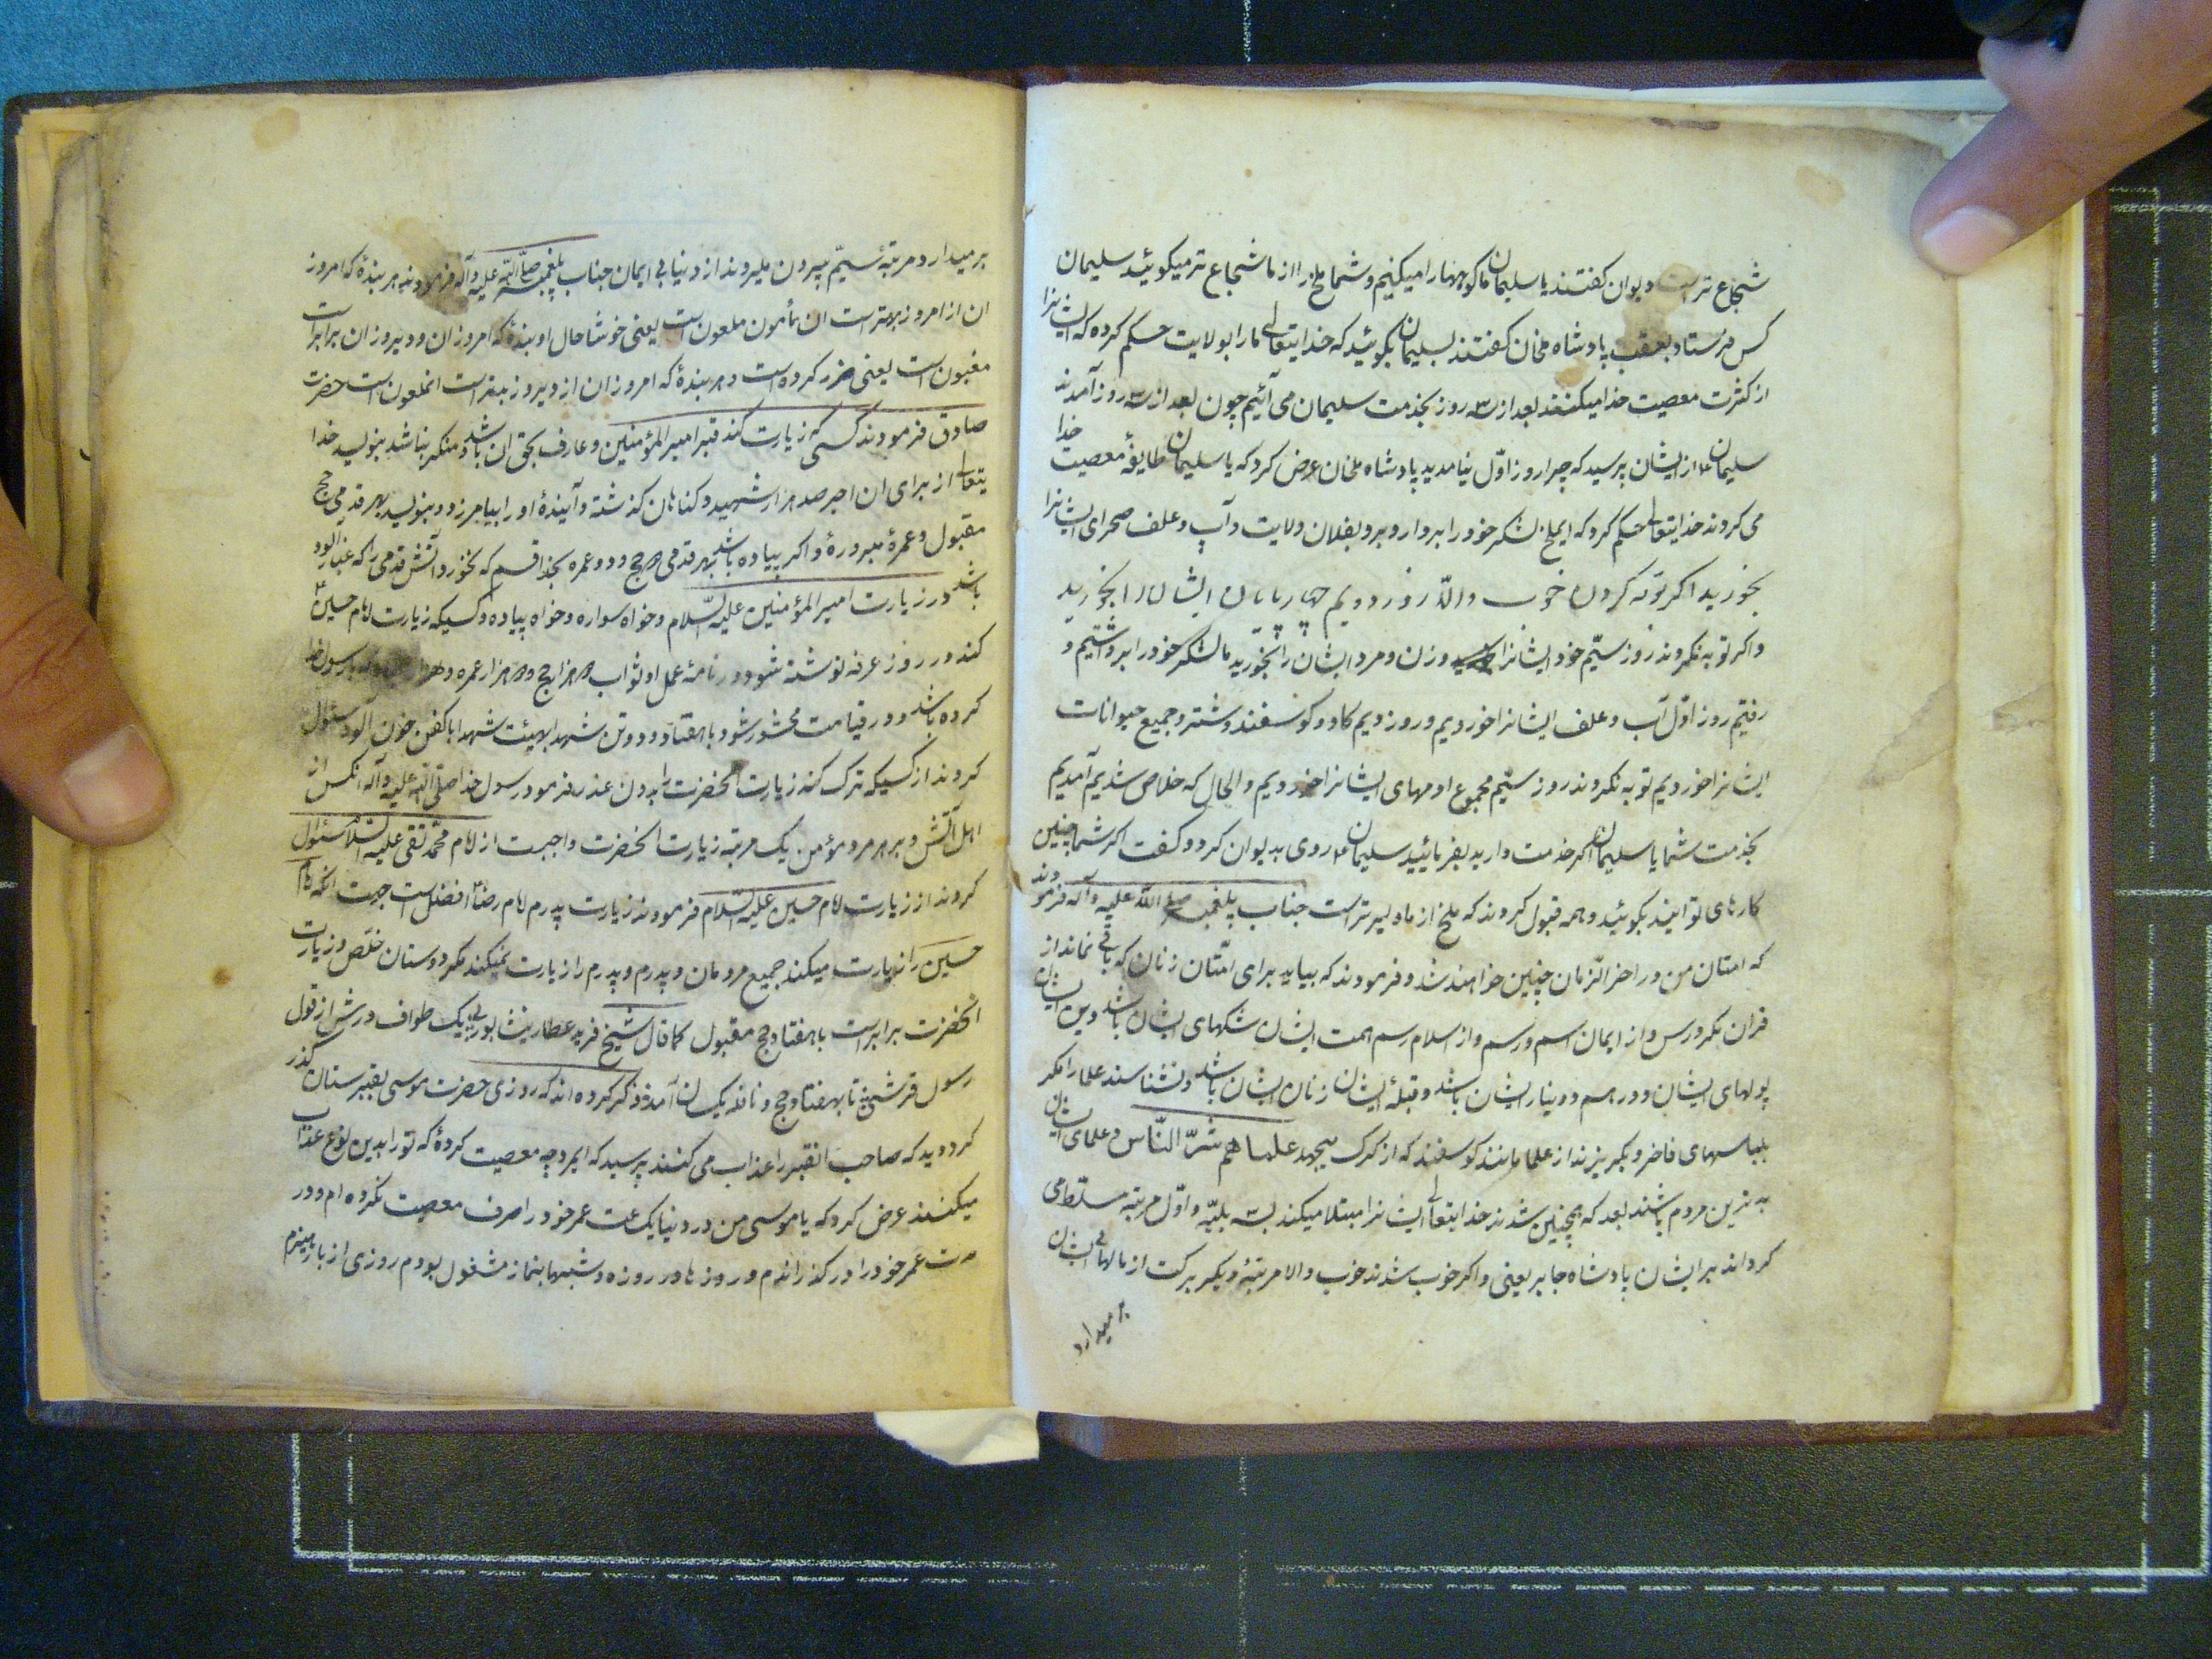 شجاع تر است دیوان کفتند یا سلیمان ما کوهها را میکنیم و شما ملخ را از ما شجاع تر میکوئید سلیمان
کس فرستاد بعقب پادشاه ملخان کفتند بسلیمان بکوئید که خدایتعالی ما را بولایت حکم کرده که ایشانرا
از کثرت معصیت خدا میکنند بعد از سه روز بخدمت سلیمان می آئیم چون بعد از سه روز آمدند
سلیمان از ایشان پرسید که چرا روز اوّل نیامدید پادشاه ملخان عرض کرد که یا سلیمان طایفهٔ معصیت خدا
می کردند خدایتعالی حکم کرد که ایملخ لشکر خود را بردار و برو بفلان ولایت و آب و علف صحرای ایشانرا
بخورید اکر توبه کردند خوب والّا روز دویم چهارپایان ایشانرا بخورید
و اکر توبه نکردند روز سیّم خود ایشانرا وزن و مرد ایشان را بخورید ما لشکر خود را برداشتیم و
رفتیم روز اوّل آب و علف ایشانرا خوردیم و روز دویم کاو و کوسفند و شتر و جمیع حیوانات
ایشانرا خوردیم توبه نکردند روز سیّم مجموع ادمهای ایشانرا خوردیم و الحال که خلاص شدیم آمدیم
بخدمت شما یا سلیمان اکر خدمت دارید بفرمائید سلیمان روی بدیوان کرد و کفت اکر شما چنین
کارهای توانید بکوئید و همه قبول کردند که ملخ از ما دلیرتر است جناب پیغمبر صلی الله علیه و آله فرمودند
که امتان من در اخر الزمان چنین خواهند شد و فرمودند که بیاید برای امّتان زمان که باقی نماند از
قران مکر درس و از ایمان اسم و رسم و از اسلام رسم همت ایشان شکمهای ایشان باشد و دین ایشان
پولهای ایشان و درهم و دینار ایشان باشد و قبلهٔ ایشان زنان ایشان باشد و نشناسند علما را مکر
بلباسهای فاخر و بکریزند از علما مانند کوسفند که از کرک میجهد علماهم شرّ النّاس و علمای ایشان
بدترین مردم باشند بعد که همچنین شدند خدایتعالی ایشانرا مبتلا میکند بسه بلیّه و اوّل مرتبه مسلط می
کرداند بر ایشان پادشاه جابر یعنی و اکر خوب شدند خوب والا مرتبهٔ دیکر برکت از مالهای ایشان
بر میدارد
بر میدارد و مرتبهٔ سیّم بیرون میروند از دنیا بی ایمان جناب پیغمبر صلّی الله علیه و آله فرمودند هر بندهٔ که امروز
ان از امروز بهتر است ان مأمون ملعون است یعنی خوشا حال او بندهٔ که امروز ان و دیروز ان برابر است
مغبون است یعنی ضرر کرده است و هر بندهٔ که امروز ان از دیروز بتر است انملعون است حضرت
صادق فرمودند کسی که زیارت کند قبر امیر المؤمنین و عارف بحق ان باشد و منکر نباشد بنویسد خدا
یتعالی از برای ان اجر صد هزار شهید و کناهان کذشته و آیندهٔ او را بیامرزد و بنویسد بهر قدمی حج
مقبول و عمرهٔ مبرورهٔ و اکر پیاده باشد بهر قدمی دو حج و دو عمره بخدا قسم که نخورد آتش قدمی را که غبار آلود
باشد در زیارت امیر المؤمنین علیه السّلام و خواه سواره و خواه پیاده و کسیکه زیارت امام حسین
کند در روز عرفه نوشته شود در نامهٔ عمل او ثواب هزار حج و هزار عمره رسول خدا
کرده باشد و در قیامت محشور شود با هفتاد و دو تن شهدا بهیئت شهدا با کفن خون آلود سئوال
کردند از کسیکه ترک کند زیارت انحضرت را بدون عذر فرمود رسول خدا صلّی الله علیه و آله انکس از
اهل آتش و بر هر مرد مؤمن یک مرتبه زیارت انحضرت واجبست از امام محمّد تقی علیه السّلام سئوال
کردند از زیارت امام حسین علیه السّلام فرمودند زیارت پدرم امام رضا افضل است جهت انکه امام
حسین را زیارت میکند جمیع مردمان و پدرم و پدرم را زیارت نمیکند مکر دوستان خلّص و زیارت
انحضرت برابر است با هفتاد حج مقبول کما قال شیخ فرید عطار نیشابوری یک طواف درش از قول
رسول قرشی تا بهفتاد حج و نافله یکسان آمد و ذکر کرده اند که روزی حضرت موسی بقبرستان کذر
کرد دید که صاحب انقبر را عذاب می کنند پرسید که ایمرد چه معصیت کردهٔ که تو را بدین نوع عذاب
میکنند عرض کرد که یا موسی من در دنیا یک ساعت عمر خود را صرف معصیت نکرده ام و در
مدت عمر خود را در کذراندم و روزها در روزه و شبها بنماز مشغول بودم روزی از بار هیزم